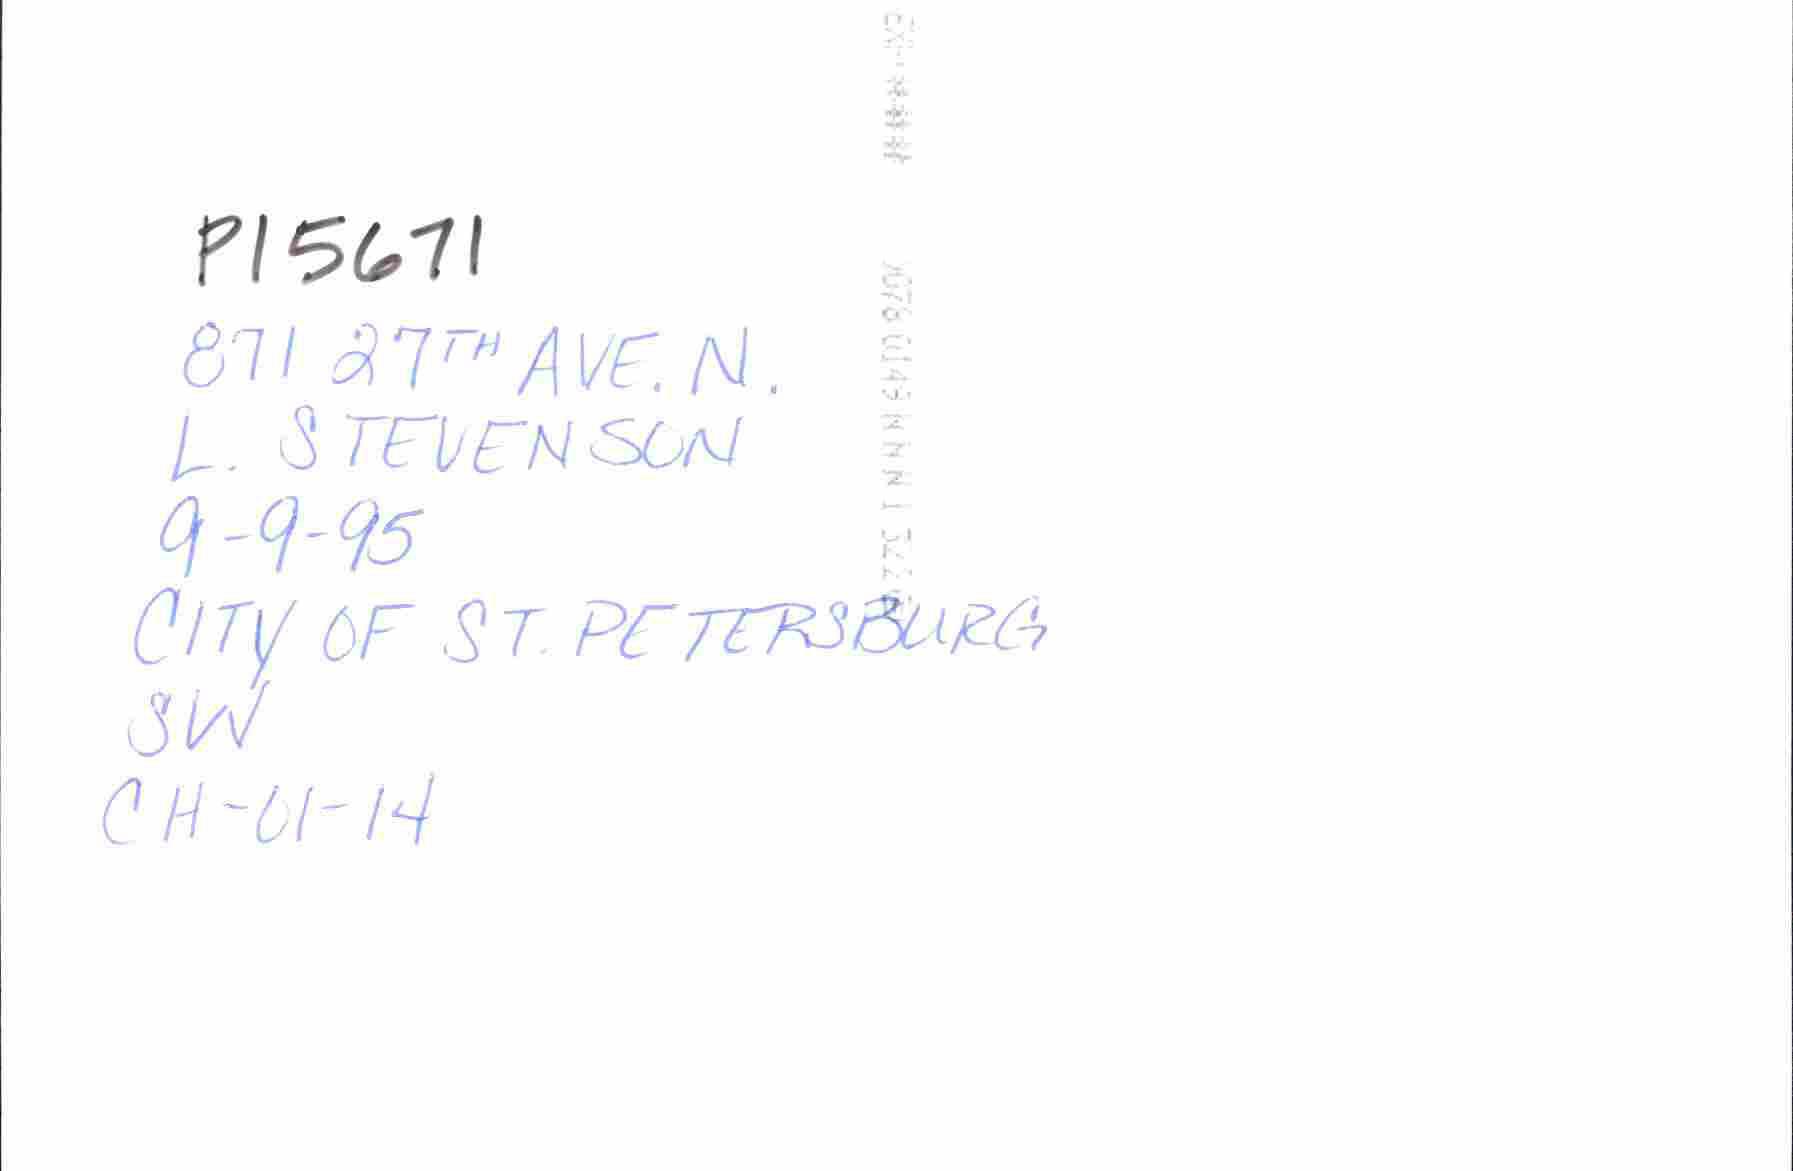 PI5671
871 27TH AVE. N.
L. STEVENSON
9-9-95
CITY OF ST. PETERSBURG
SW
CH-01-14